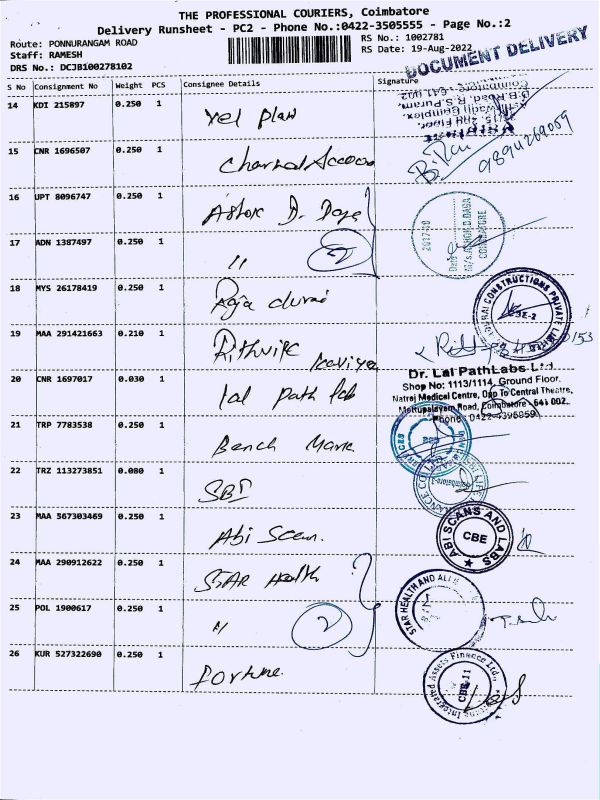 THE PROFESSIONAL COURIERS, Coimbatore
Delivery Runsheet - PC2 - Phone No.:0422-3505555 - Page No.:2
Route: PONNURANGAM ROAD
RS No.: 1002781
Staff: RAMESH
RS Date: 19-Aug-2022
DRS No.: DCJB100278102
DOCUMENT DELIVERY
S No Consignment No Weight PCS Consignee Details Signature
14 KDI 215897 0.250 1 Yel plan
D.B.Road, R.S.Puram,
Coimbatore - 641 002
9894269059
15 CNR 1696507 0.250 1
16 UPT 8096747 0.250 1 Ashok D. Daga
2017-18
M/s. ASHOK D. DAGA
COIMBATORE
17 ADN 1387497 0.250 1 "
2
18 MYS 26178419 0.250 1 Raja durai
CONSTRUCTIONS PRIVATE LIMITED
CBE-2
19 MAA 291421663 0.210 1 Rithvik
20 CNR 1697017 0.030 1 lal path lab
Dr. Lal PathLabs Ltd.
Shop No: 1113/1114, Ground Floor,
Natraj Medical Centre, Opp To Central Theatre,
Mettupalayam Road, Coimbatore - 641 002.
Phone: 0422-4395859
21 TRP 7783538 0.250 1 Bench Mark
22 TRZ 113273851 0.080 1 SBI
23 MAA 567303469 0.250 1 Abi Scan.
ABI SCANS AND LABS
CBE
24 MAA 290912622 0.250 1 STAR Health
STAR HEALTH AND
25 POL 1900617 0.250 1 "
2
26 KUR 527322690 0.250 1 Fortune.
Integrated Assets Finance Ltd.
CBE-11